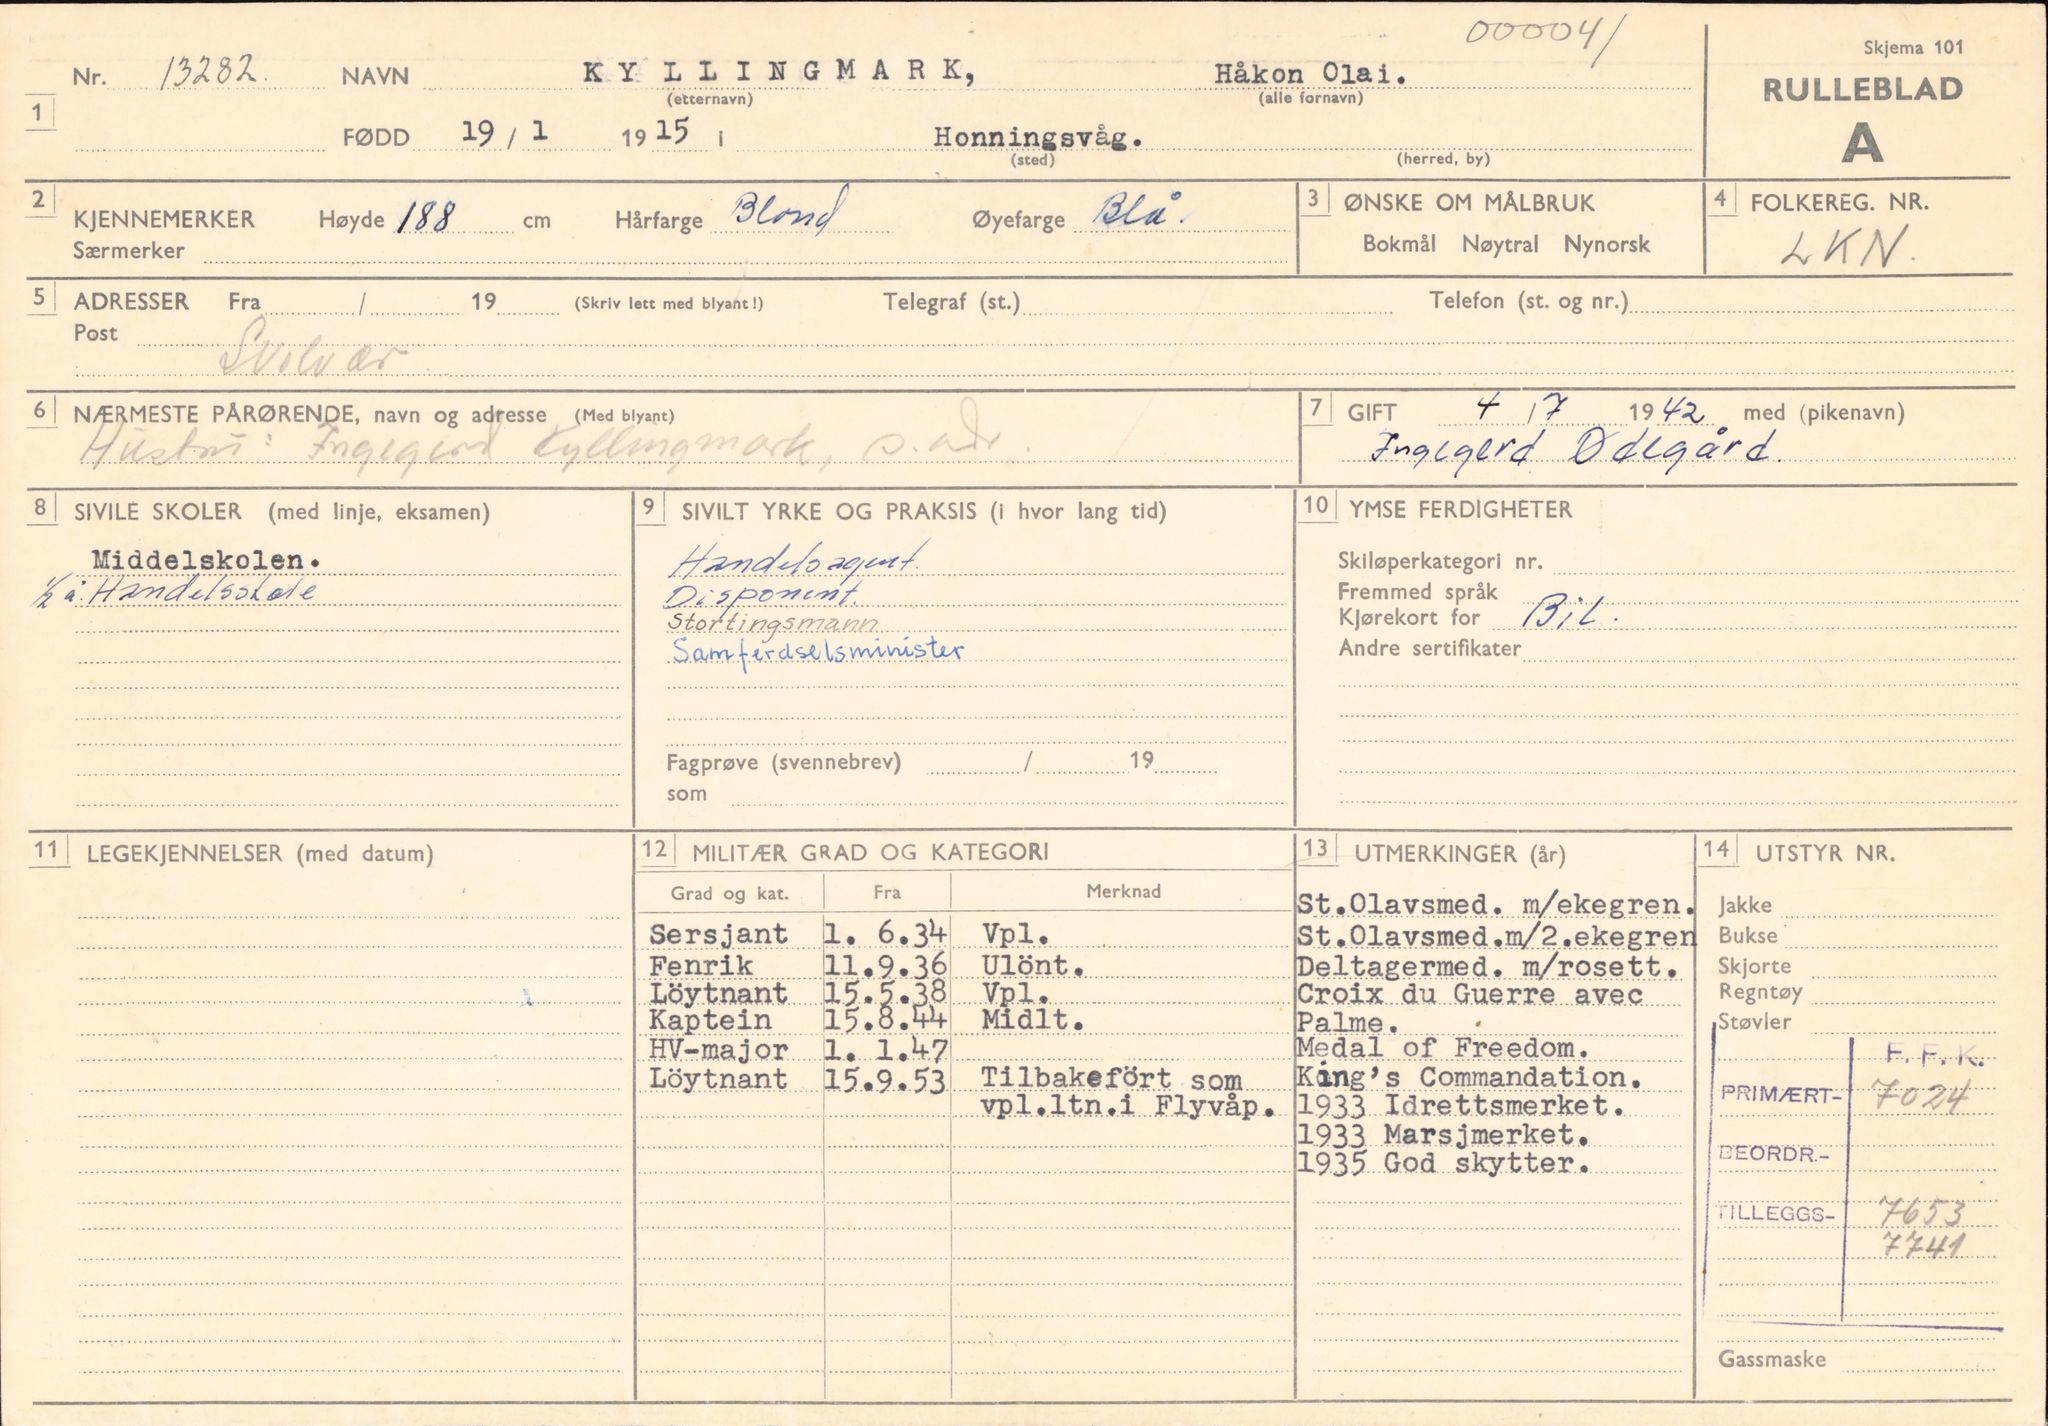 00004/
Skjema 101
Nr. 13282. NAVN KYLLINGMARK, Håkon Olai.
(etternavn) (alle fornavn)
RULLEBLAD
A
1
FØDD 19 / 1 1915 i Honningsvåg.
(sted) (herred, by)
2 KJENNEMERKER Høyde 188 cm Hårfarge Blond Øyefarge Blå.
Særmerker
3 ØNSKE OM MÅLBRUK
Bokmål Nøytral Nynorsk
4 FOLKEREG. NR.
LKN.
5 ADRESSER Fra / 19 (Skriv lett med blyant!) Telegraf (st.) Telefon (st. og nr.)
Post
Svolvær
6 NÆRMESTE PÅRØRENDE, navn og adresse (Med blyant)
Hustru: Ingegerd Kyllingmark, s. adr.
7 GIFT 4 / 7 1942 med (pikenavn)
Ingegerd Ødegård.
8 SIVILE SKOLER (med linje, eksamen)
Middelskolen.
1/2 å. Handelsskole
9 SIVILT YRKE OG PRAKSIS (i hvor lang tid)
Handelsagent.
Disponent.
Stortingsmann
Samferdselsminister
Fagprøve (svennebrev) / 19
som
10 YMSE FERDIGHETER
Skiløperkategori nr.
Fremmed språk
Kjørekort for Bil.
Andre sertifikater
11 LEGEKJENNELSER (med datum)
12 MILITÆR GRAD OG KATEGORI
Grad og kat. Fra Merknad
Sersjant 1. 6.34 Vpl.
Fenrik 11.9.36 Ulönt.
Löytnant 15.5.38 Vpl.
Kaptein 15.8.44 Midlt.
HV-major 1. 1.47
Löytnant 15.9.53 Tilbakefört som
vpl.ltn.i Flyvåp.
13 UTMERKINGER (år)
St.Olavsmed. m/ekegren.
St.Olavsmed.m/2.ekegren
Deltagermed. m/rosett.
Croix du Guerre avec
Palme.
Medal of Freedom.
King's Commandation.
1933 Idrettsmerket.
1933 Marsjmerket.
1935 God skytter.
14 UTSTYR NR.
Jakke
Bukse
Skjorte
Regntøy
Støvler
F. F. K.
PRIMÆRT- 7024
BEORDR.-
TILLEGGS- 7653
7741
Gassmaske